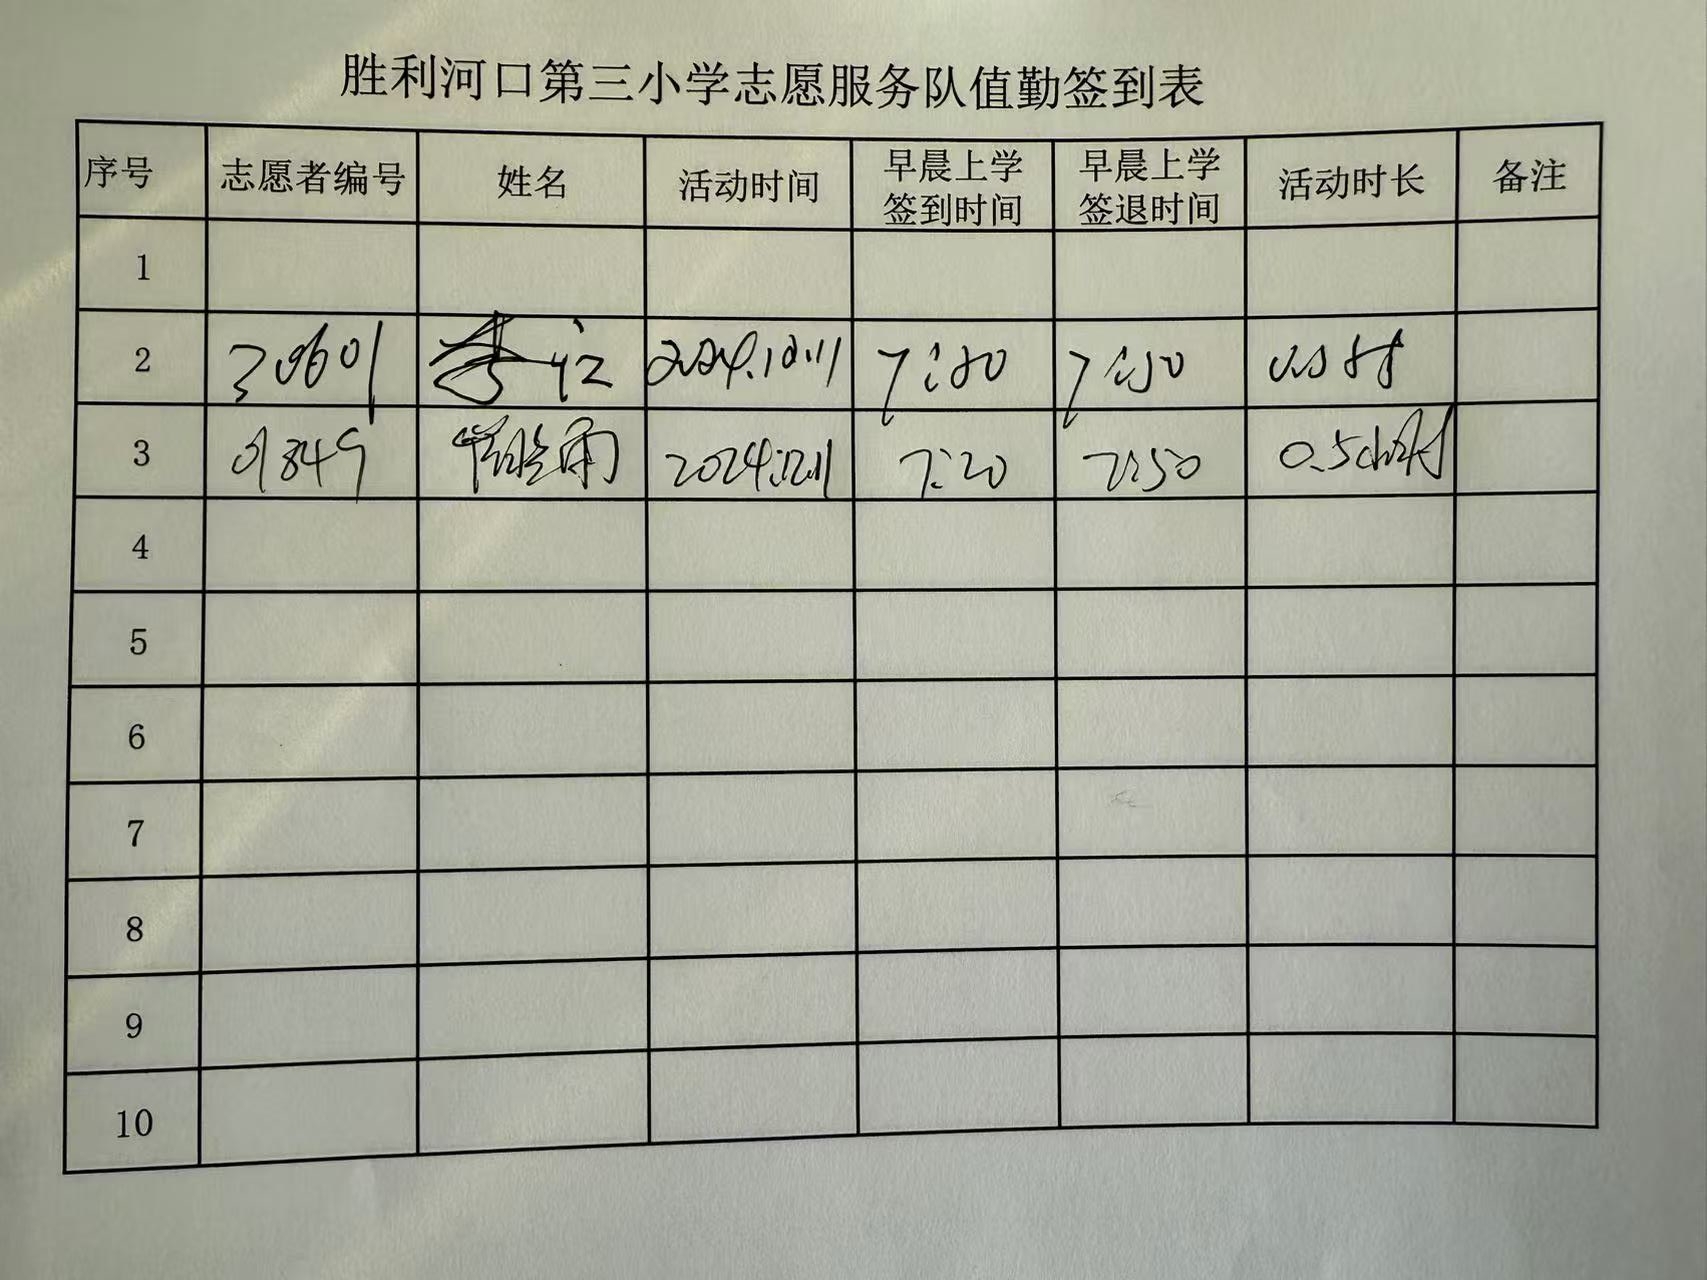 胜利河口第三小学志愿服务队值勤签到表
序号 志愿者编号 姓名 活动时间 早晨上学签到时间 早晨上学签退时间 活动时长 备注
1
2 30601 7:50
3 01849 2024.12.11 7:20 7:50 0.5小时
4
5
6
7
8
9
10